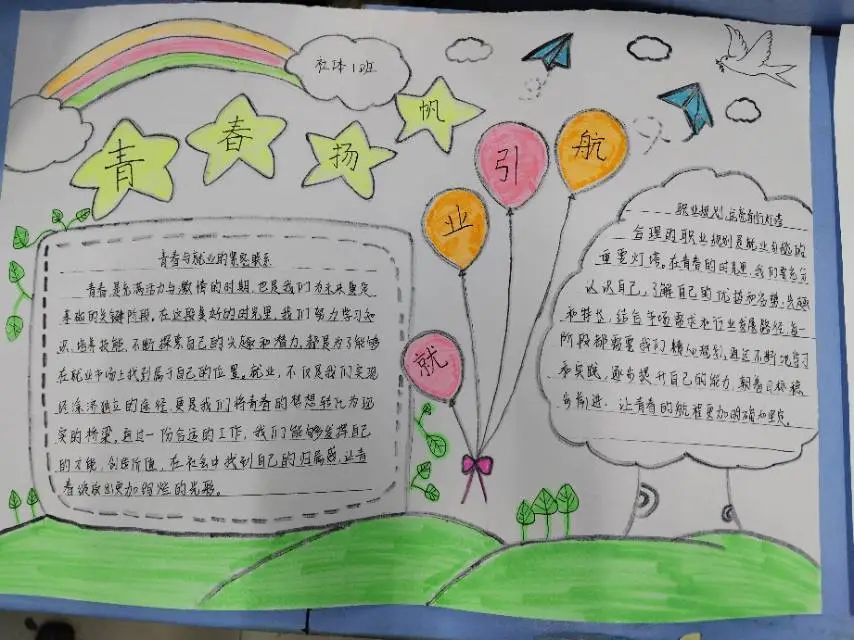 社体1班
青春扬帆
就业引航
青春与就业的紧密联系
青春是充满活力与激情的时期,也是我们为未来奠定
基础的关键阶段。在这段美好的时光里,我们努力学习知
识,培养技能,不断探索自己的兴趣和潜力,都是为了能够
在就业市场上找到属于自己的位置。就业,不仅是我们实现
经济独立的途径,更是我们将青春的梦想转化为现
实的桥梁。通过一份合适的工作,我们能够发挥自己
的才能,创造价值,在社会中找到自己的归属感,让青
春绽放出更加绚烂的光彩。
职业规划,
合理的职业规划是就业
重要灯塔。在青春的时光里,我们要
认识自己,了解自己的优势和劣势,兴趣
和特长,结合市场需求和行业发展路径,每一
阶段都需要我们精心规划,通过不断地学习
和实践,逐步提升自己的能力,朝着目标稳
步前进,让青春的航程更加明确和坚定。